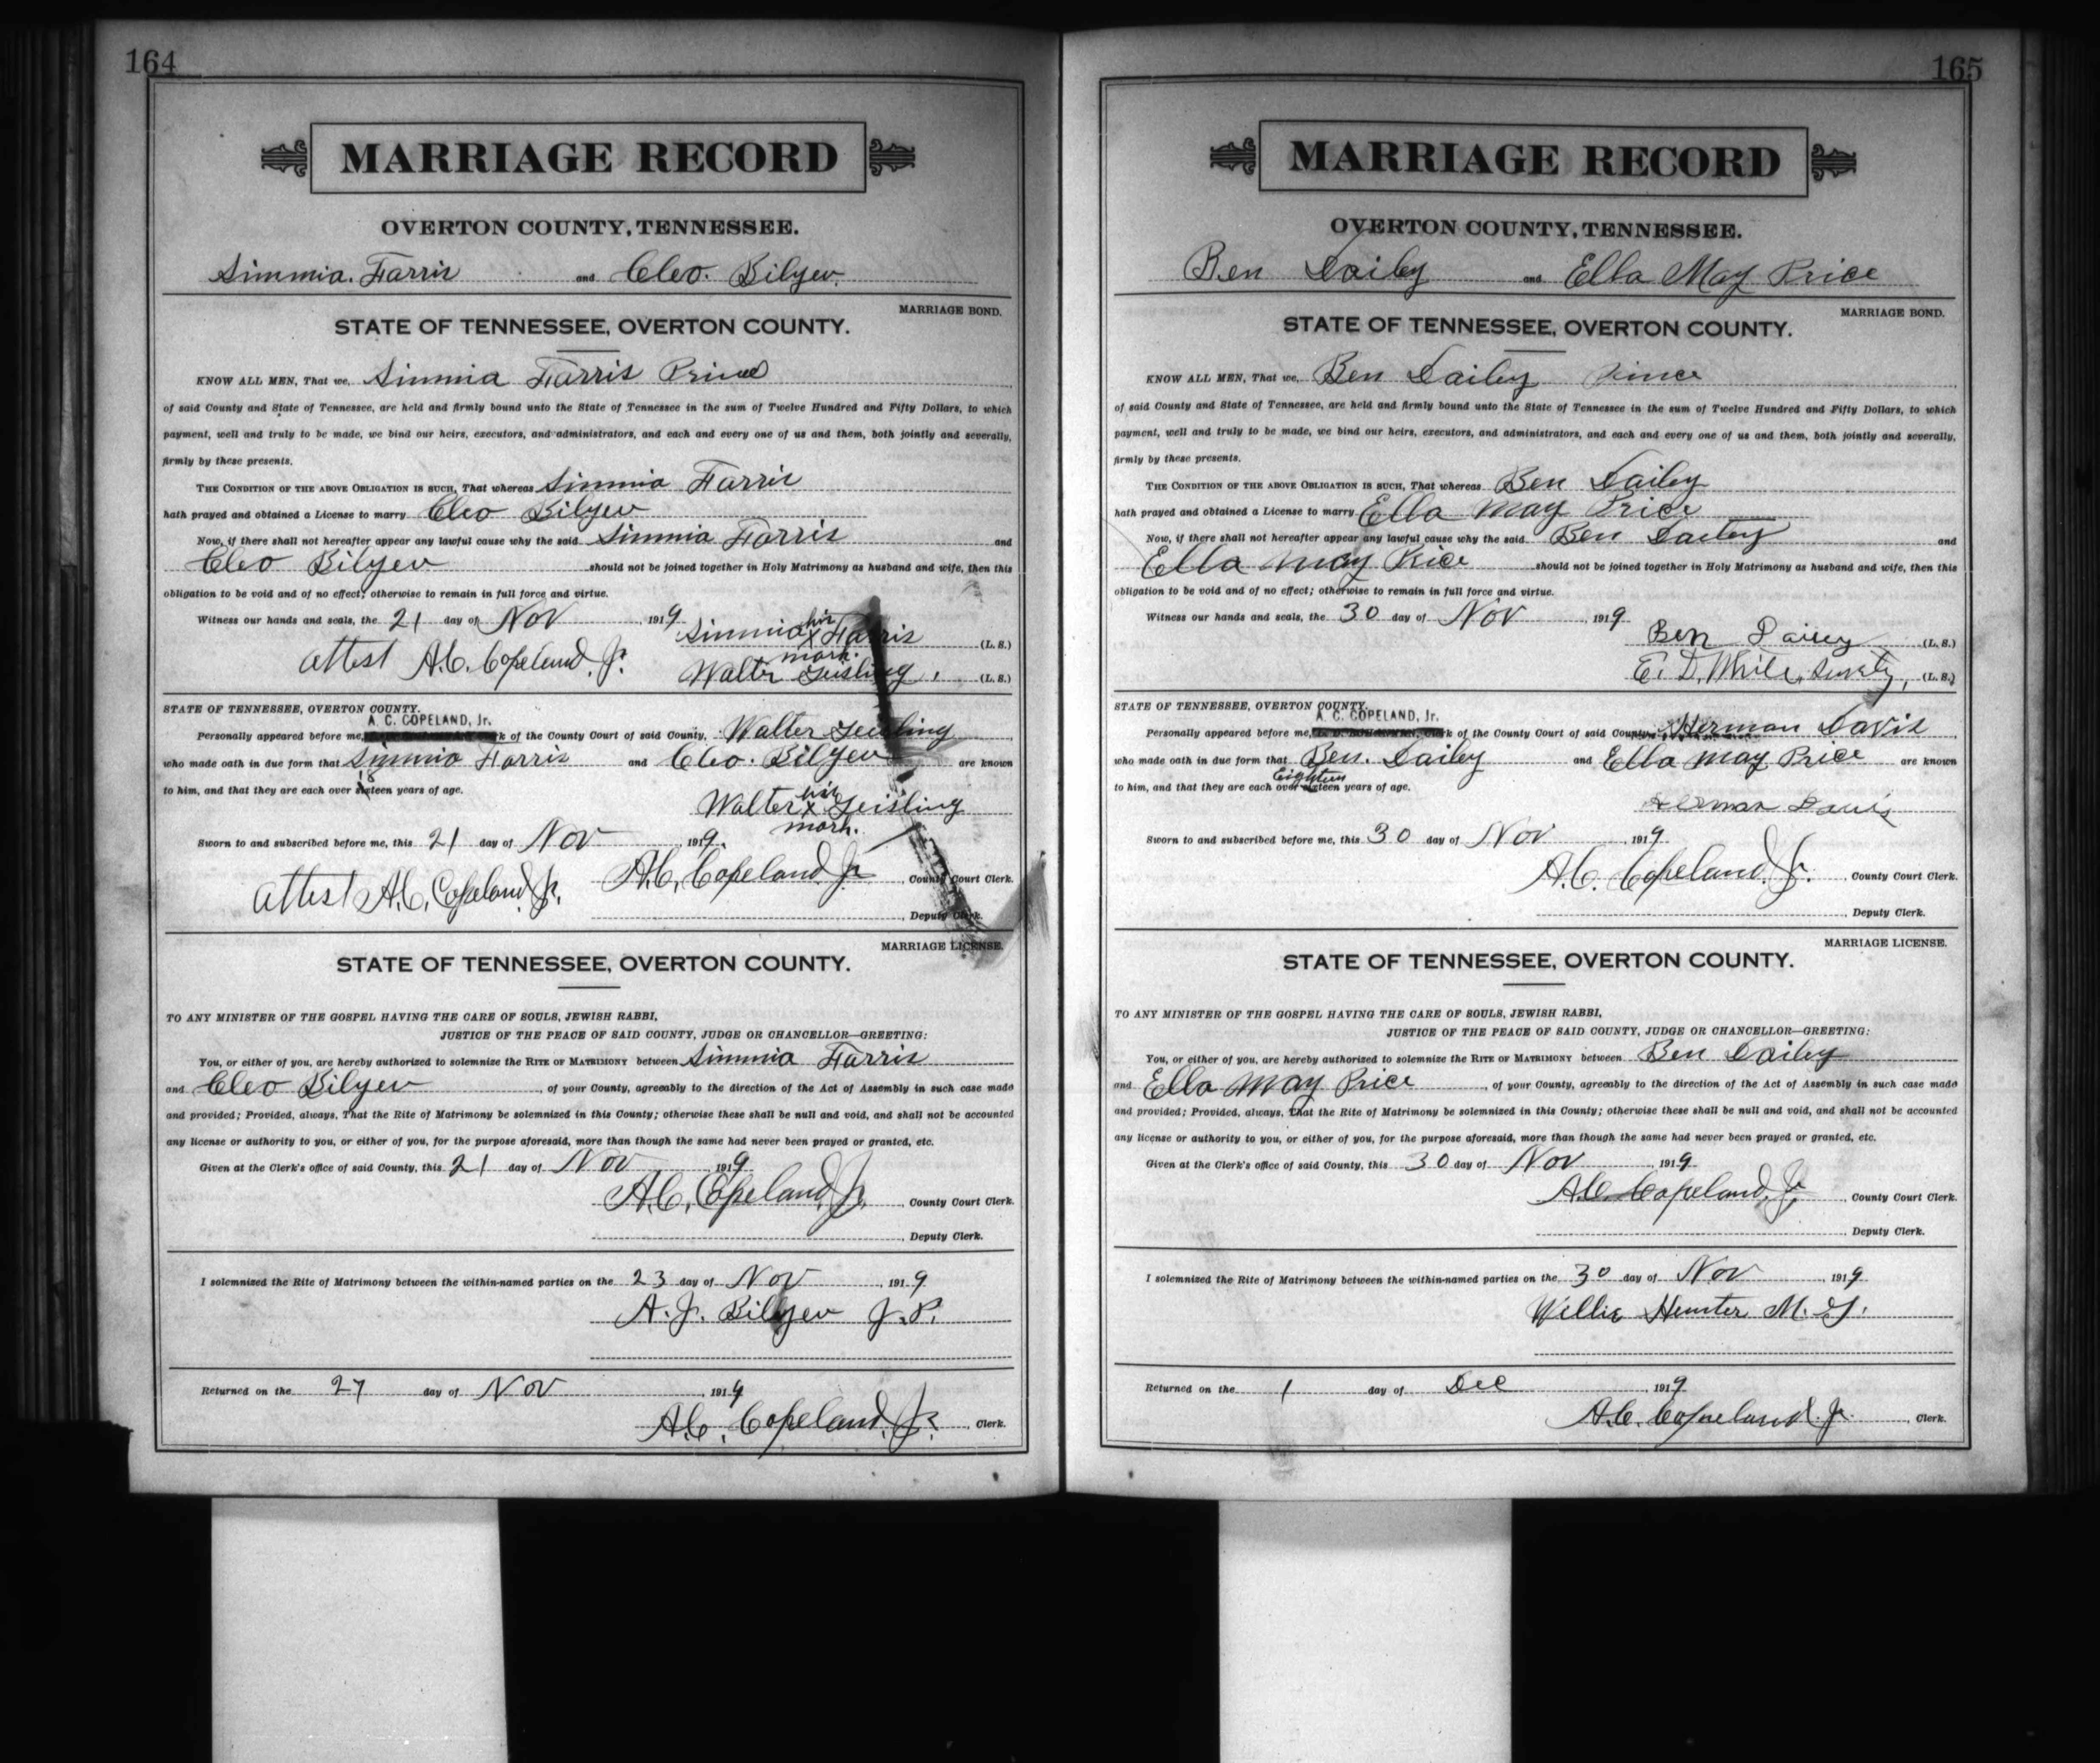 164
MARRIAGE RECORD
OVERTON COUNTY, TENNESSEE.
Simmia. Farris and Cleo. Bilyeu.
MARRIAGE BOND.
STATE OF TENNESSEE, OVERTON COUNTY.
KNOW ALL MEN, That we, Simmia Farris
of said County and State of Tennessee, are held and firmly bound unto the State of Tennessee in the sum of Twelve Hundred and Fifty Dollars, to which
payment, well and truly to be made, we bind our heirs, executors, and administrators, and each and every one of us and them, both jointly and severally,
firmly by these presents.
THE CONDITION OF THE ABOVE OBLIGATION IS SUCH, That whereas Simmia Farris
hath prayed and obtained a License to marry Cleo Bilyeu
Now, if there shall not hereafter appear any lawful cause why the said Simmia Farris and
Cleo Bilyeu should not be joined together in Holy Matrimony as husband and wife, then this
obligation to be void and of no effect; otherwise to remain in full force and virtue.
Witness our hands and seals, the 21 day of Nov, 1919
Simmia his x mark. Farris (L. S.)
attest A.C. Copeland Jr. Walter Geisling, (L. S.)
STATE OF TENNESSEE, OVERTON COUNTY.
A. C. COPELAND, Jr.
Personally appeared before me, k of the County Court of said County, Walter Geisling
who made oath in due form that Simmia Farris and Cleo. Bilyeu are known
to him, and that they are each over 18 sixteen years of age.
Walter his x mark. Geisling
Sworn to and subscribed before me, this 21 day of Nov, 1919.
attest A.C. Copeland Jr. A.C. Copeland Jr., County Court Clerk.
, Deputy Clerk.
MARRIAGE LICENSE.
STATE OF TENNESSEE, OVERTON COUNTY.
TO ANY MINISTER OF THE GOSPEL HAVING THE CARE OF SOULS, JEWISH RABBI,
JUSTICE OF THE PEACE OF SAID COUNTY, JUDGE OR CHANCELLOR—GREETING:
You, or either of you, are hereby authorized to solemnize the RITE OF MATRIMONY between Simmia Farris
and Cleo Bilyeu, of your County, agreeably to the direction of the Act of Assembly in such case made
and provided; Provided, always, That the Rite of Matrimony be solemnized in this County; otherwise these shall be null and void, and shall not be accounted
any license or authority to you, or either of you, for the purpose aforesaid, more than though the same had never been prayed or granted, etc.
Given at the Clerk's office of said County, this 21 day of Nov, 1919
A.C. Copeland, Jr., County Court Clerk.
, Deputy Clerk.
I solemnized the Rite of Matrimony between the within-named parties on the 23 day of Nov, 1919
A. J. Bilyeu J.P.
Returned on the 27 day of Nov, 1919
A.C. Copeland, Jr., Clerk.
165
MARRIAGE RECORD
OVERTON COUNTY, TENNESSEE.
Ben Dailey and Ella May Price
MARRIAGE BOND.
STATE OF TENNESSEE, OVERTON COUNTY.
KNOW ALL MEN, That we, Ben Dailey
of said County and State of Tennessee, are held and firmly bound unto the State of Tennessee in the sum of Twelve Hundred and Fifty Dollars, to which
payment, well and truly to be made, we bind our heirs, executors, and administrators, and each and every one of us and them, both jointly and severally,
firmly by these presents.
THE CONDITION OF THE ABOVE OBLIGATION IS SUCH, That whereas Ben Dailey
hath prayed and obtained a License to marry Ella May Price
Now, if there shall not hereafter appear any lawful cause why the said Ben Dailey and
Ella May Price should not be joined together in Holy Matrimony as husband and wife, then this
obligation to be void and of no effect; otherwise to remain in full force and virtue.
Witness our hands and seals, the 30 day of Nov, 1919
Ben Dailey (L. S.)
E. D. White, Surety, (L. S.)
STATE OF TENNESSEE, OVERTON COUNTY.
A. C. COPELAND, Jr.
Personally appeared before me, Clerk of the County Court of said County, Herman Davis
who made oath in due form that Ben. Dailey and Ella May Price are known
to him, and that they are each over Eighteen sixteen years of age.
Herman Davis
Sworn to and subscribed before me, this 30 day of Nov, 1919
A.C. Copeland. Jr., County Court Clerk.
, Deputy Clerk.
MARRIAGE LICENSE.
STATE OF TENNESSEE, OVERTON COUNTY.
TO ANY MINISTER OF THE GOSPEL HAVING THE CARE OF SOULS, JEWISH RABBI,
JUSTICE OF THE PEACE OF SAID COUNTY, JUDGE OR CHANCELLOR—GREETING:
You, or either of you, are hereby authorized to solemnize the RITE OF MATRIMONY between Ben Dailey
and Ella May Price, of your County, agreeably to the direction of the Act of Assembly in such case made
and provided; Provided, always, That the Rite of Matrimony be solemnized in this County; otherwise these shall be null and void, and shall not be accounted
any license or authority to you, or either of you, for the purpose aforesaid, more than though the same had never been prayed or granted, etc.
Given at the Clerk's office of said County, this 30 day of Nov, 1919
A.C. Copeland, Jr., County Court Clerk.
, Deputy Clerk.
I solemnized the Rite of Matrimony between the within-named parties on the 30 day of Nov, 1919
Willie Hunter M. G.
Returned on the 1 day of Dec, 1919
A.C. Copeland. Jr., Clerk.